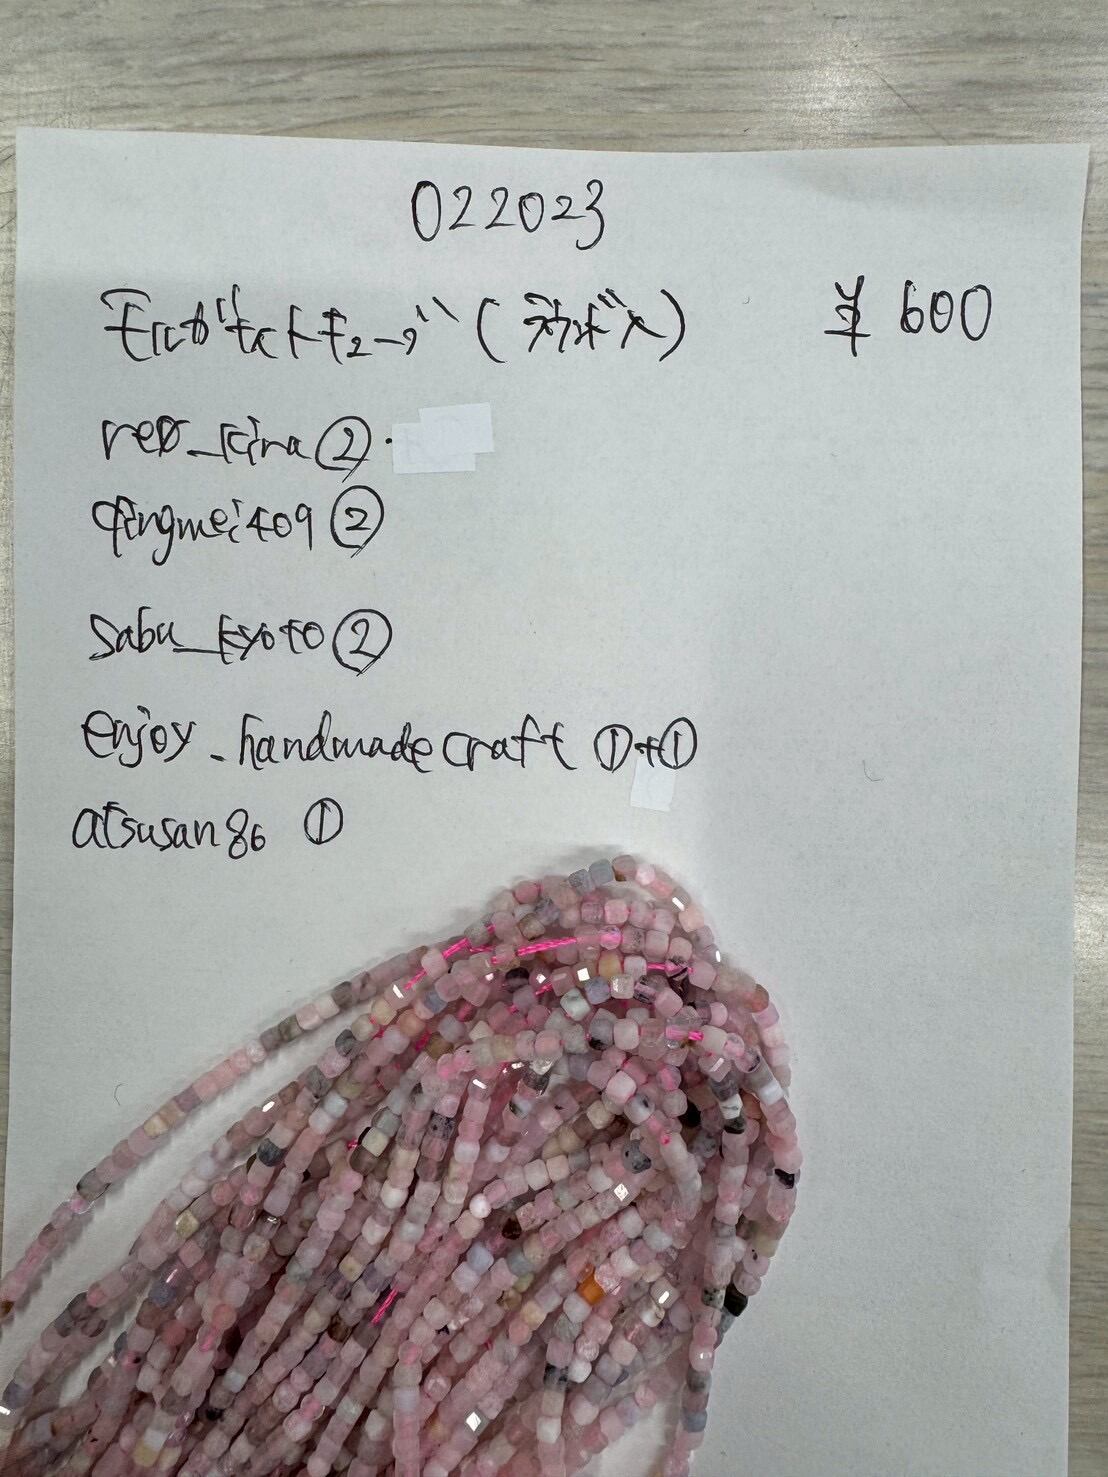 022023
モルガナイトキューブ(ラウンドボックス) ¥600
reo_kira②・
qingmei409②
sabu_kyoto②
enjoy_handmadecraft ①+①
atsusan86 ①